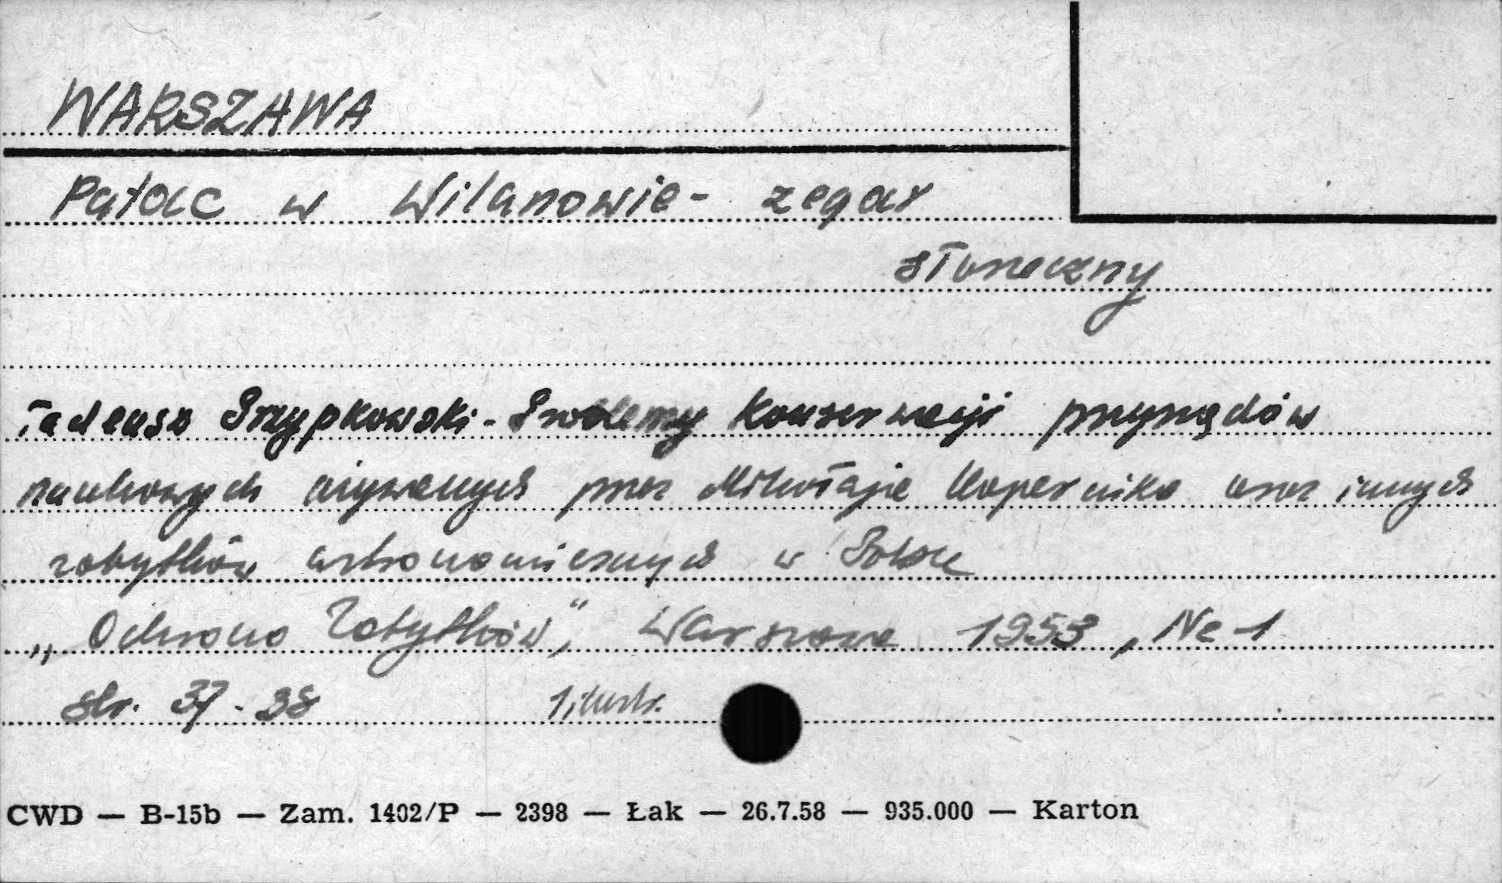 WARSZAWA
Pałac w Wilanowie - zegar
słoneczny
Tadeusz Przypkowski - Problemy konserwacji przyrządów
naukowych używanych przez Mikołaja Kopernika oraz innych
zabytków astronomicznych w Polsce
„Ochrona Zabytków", Warszawa 1953, Nr 1
str. 37-38 1 ilustr.
CWD — B-15b — Zam. 1402/P — 2398 — Łak — 26.7.58 — 935.000 — Karton